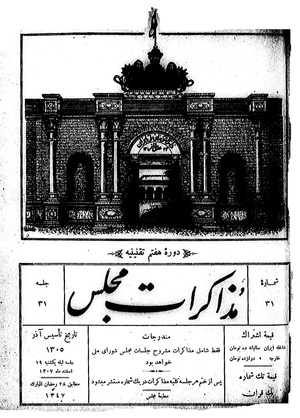 دورهٔ هفتم تقنینیه
مذاکرات مجلس
شماره
۳۱
جلسه
۳۱
تاریخ تأسیس آذر
۱۳۰۵
جلسه لیله یکشنبه ۱۹
اسفند ماه ۱۳۰۷
مطابق ۲۸ رمضان المبارک
۱۳۴۷
مندرجات
فقط شامل مذاکرات مشروح جلسات مجلس شورای ملی
خواهد بود
پس از ختم هر جلسه کلیه مذاکرات در یک شماره منتشر میشود
مطبعهٔ مجلس
قیمت اشتراک
داخله ایران سالیانه ده تومان
خارجه دوازده تومان
قیمت تک شماره
یک قران